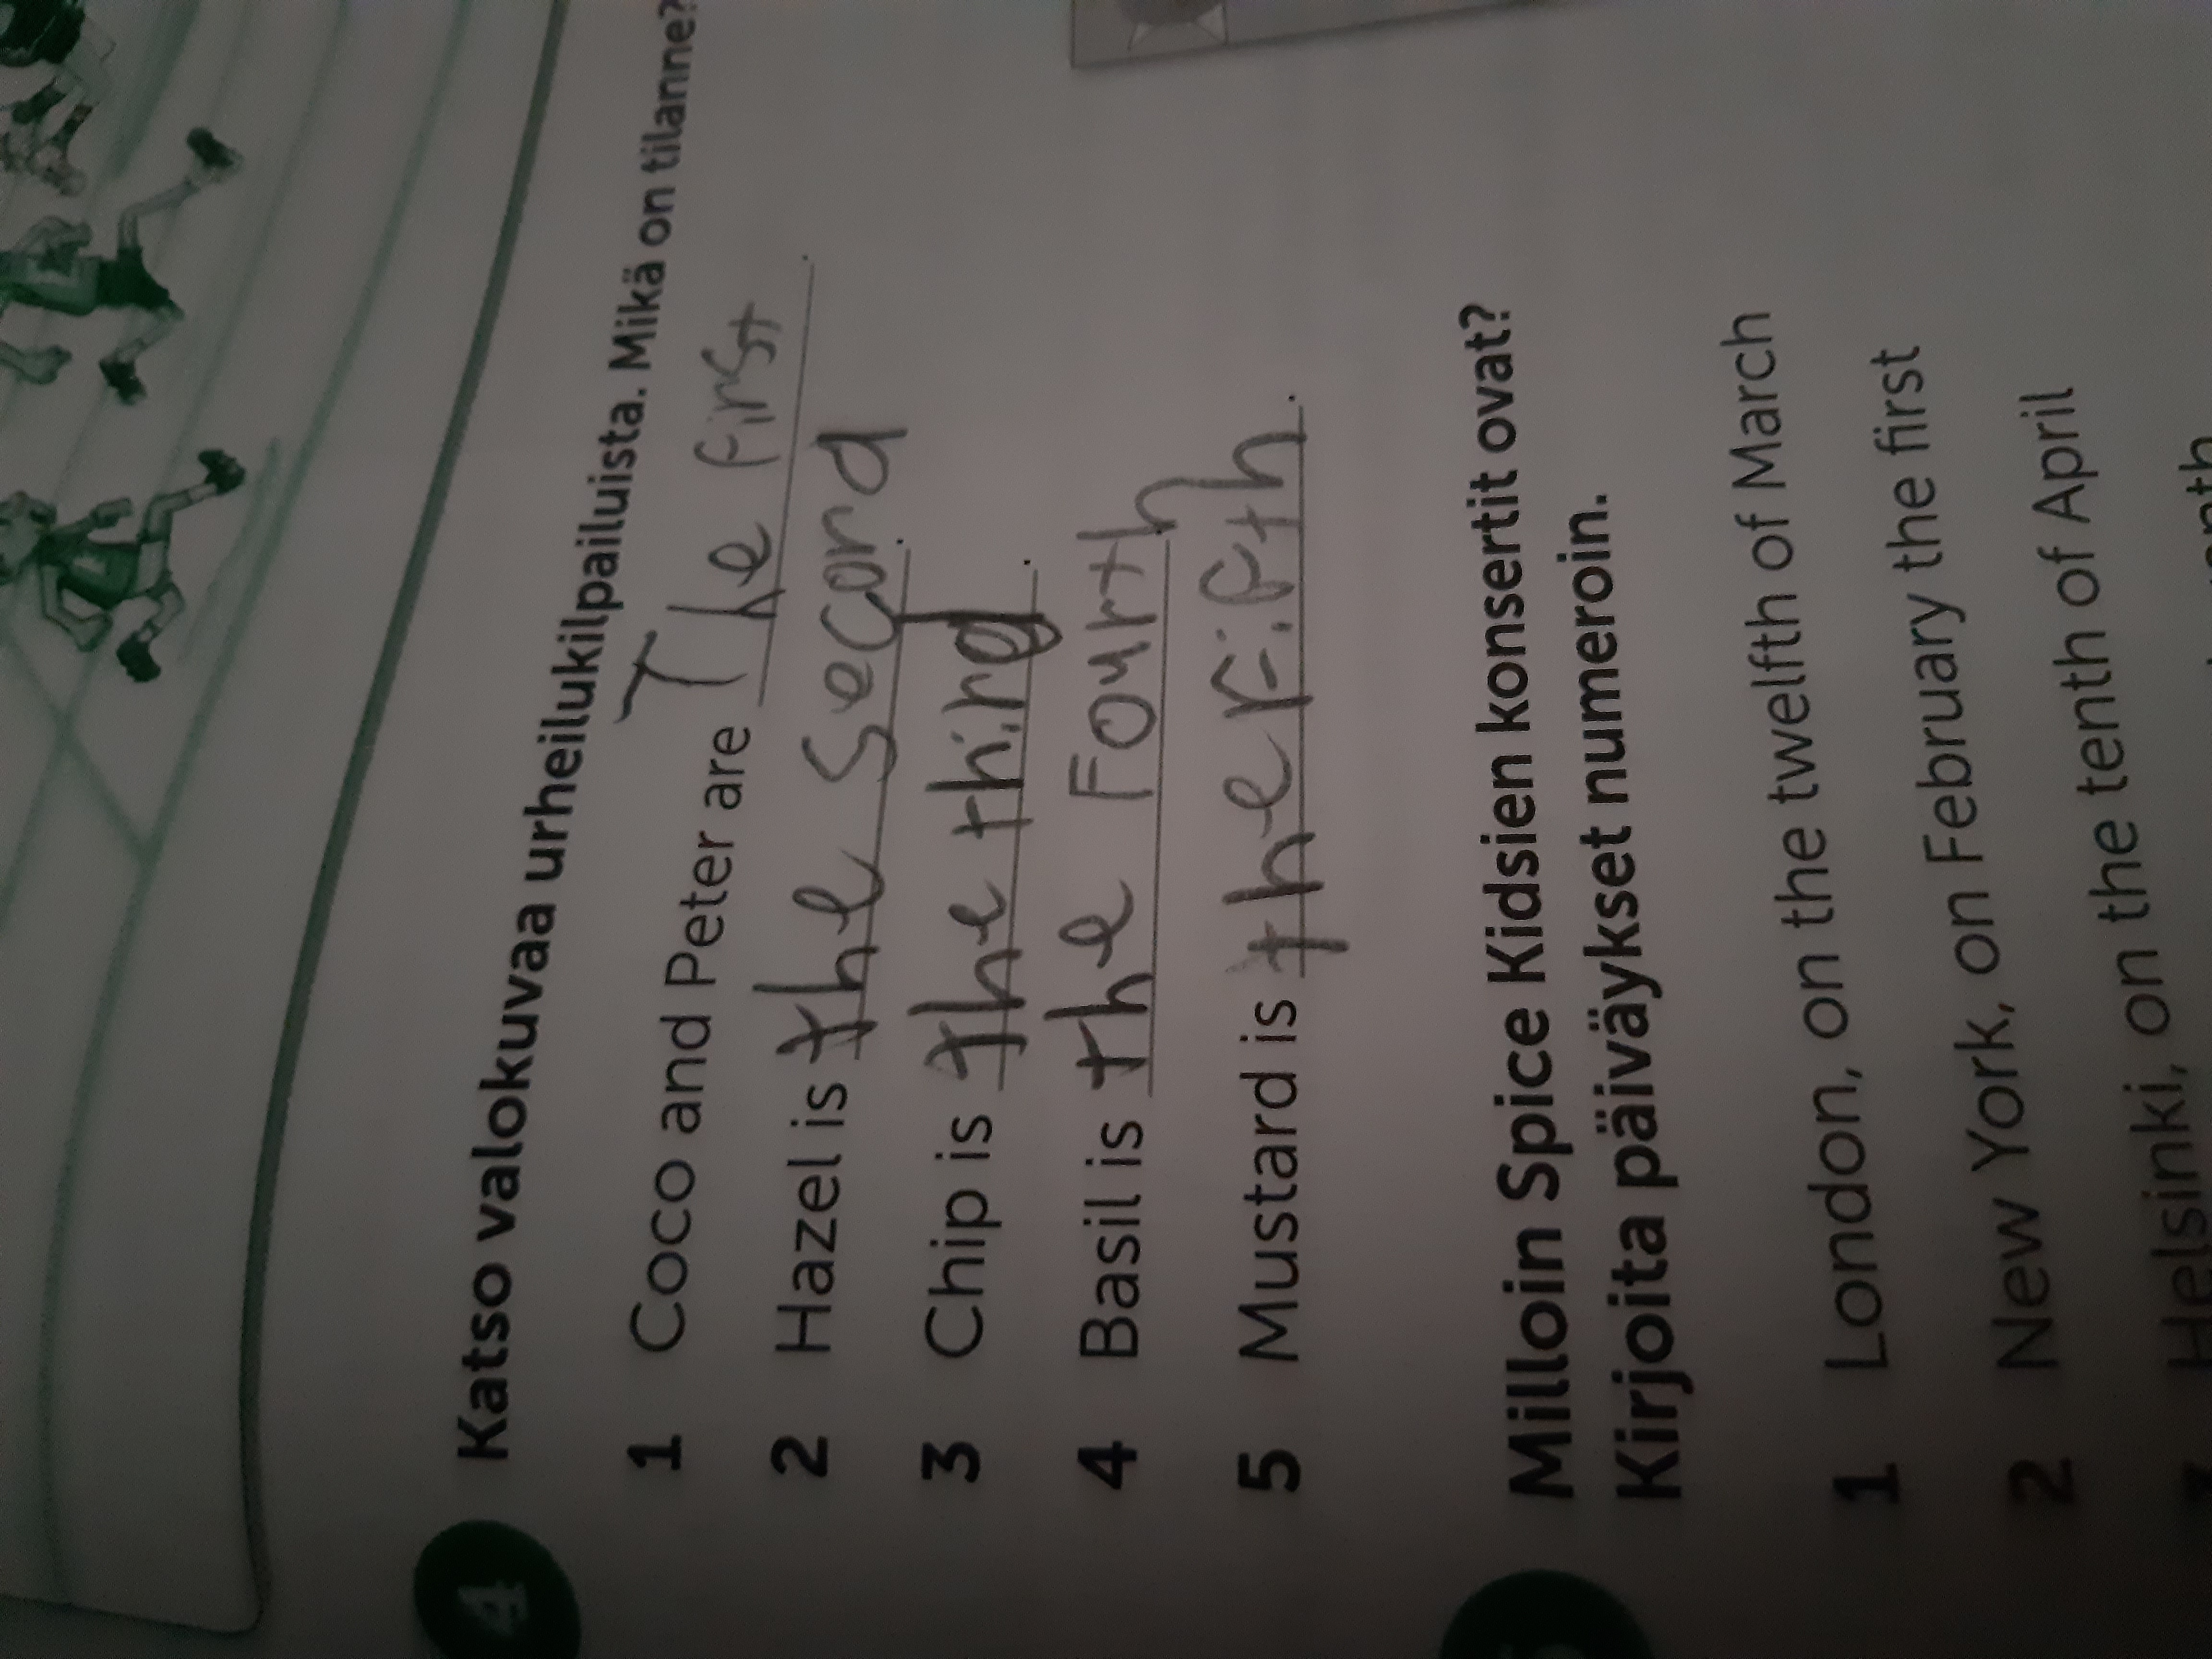 4 Katso valokuvaa urheilukilpailuista. Mikä on tilanne?
1 Coco and Peter are The first.
2 Hazel is the second.
3 Chip is the third.
4 Basil is the Fourth.
5 Mustard is the Fifth.
Milloin Spice Kidsien konsertit ovat?
Kirjoita päiväykset numeroin.
1 London, on the twelfth of March
2 New York, on February the first
Helsinki, on the tenth of April